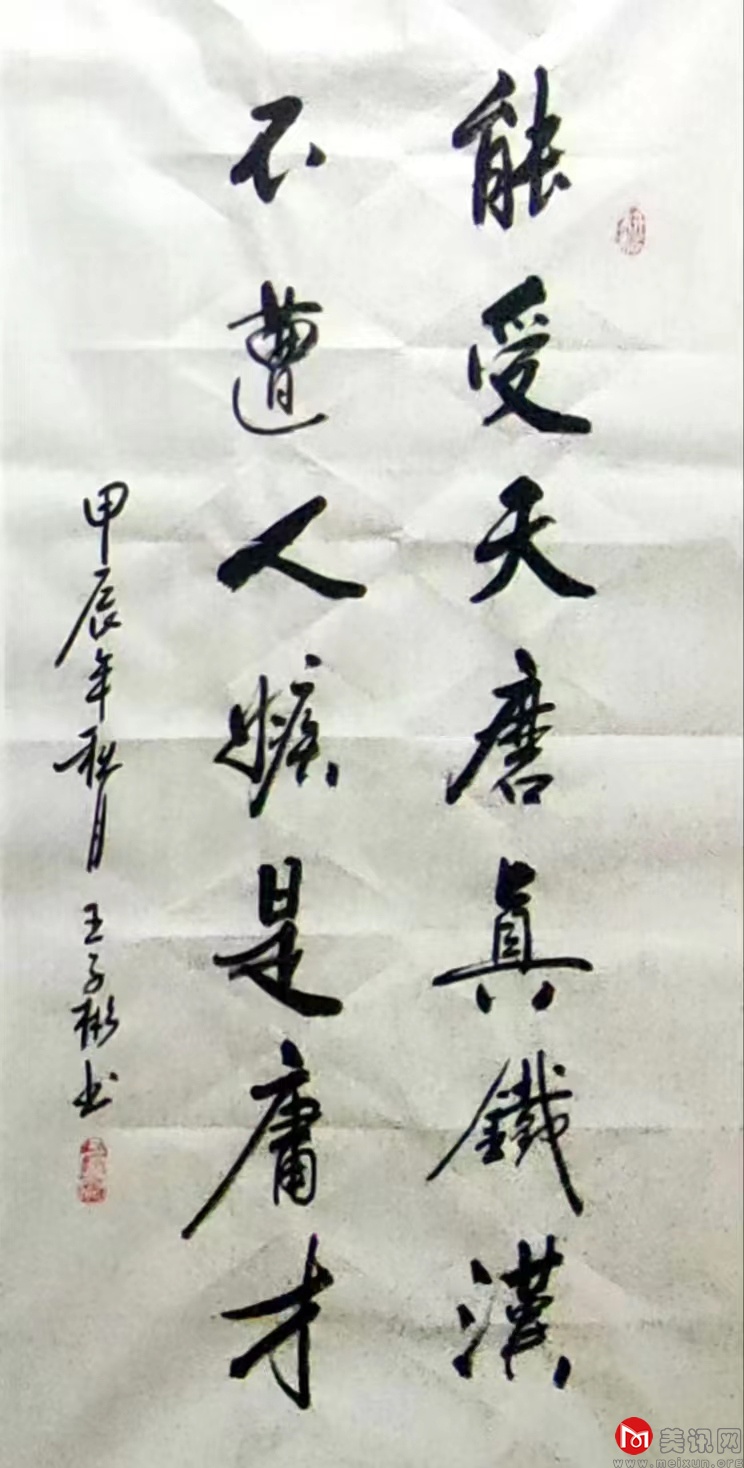 能受天磨真鐵漢
不遭人嫉是庸才
甲辰年秋月王子彬书
美讯网
www.meixun.org